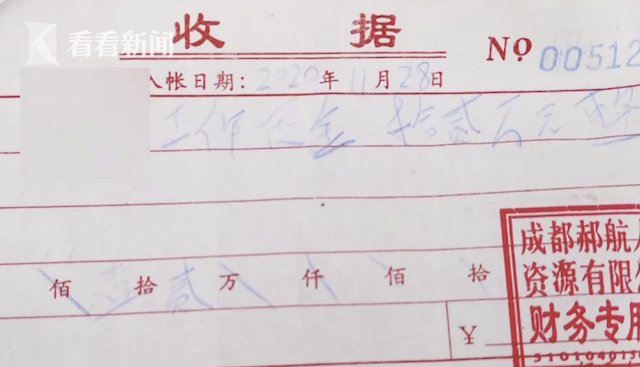 看看新闻
收 据 No 00512
入帐日期: 2020 年 11 月 28 日
工作 金 拾贰万元整
佰 壹 拾 贰 万 仟 佰 拾
¥
成都郝航人
资源有限公
财务专用
5101040150